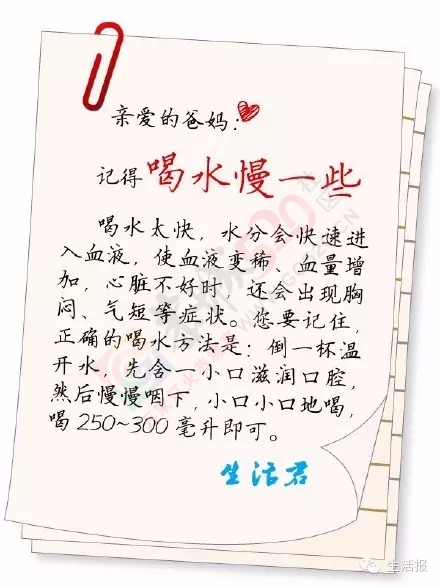 亲爱的爸妈：
记得喝水慢一些
喝水太快，水分会快速进
入血液，使血液变稀、血量增
加，心脏不好时，还会出现胸
闷、气短等症状。您要记住，
正确的喝水方法是：倒一杯温
开水，先含一小口滋润口腔，
然后慢慢咽下，小口小口地喝，
喝250~300毫升即可。
生活君
生活报